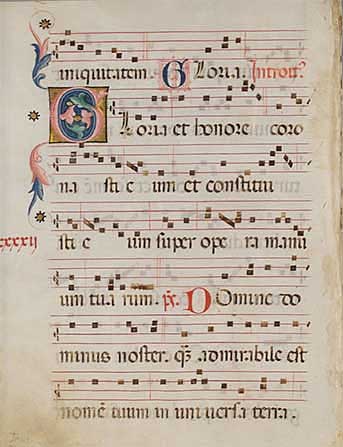 iniquitatem. GLoria. Introit9
GLoria et honore coro
na sti e um et constitui
sti e um super ope ra manu
xxxxij
um tua rum. ps. DOmine do
minus noster. q3 admirabile est
nomē tuum in uni uersa terra.